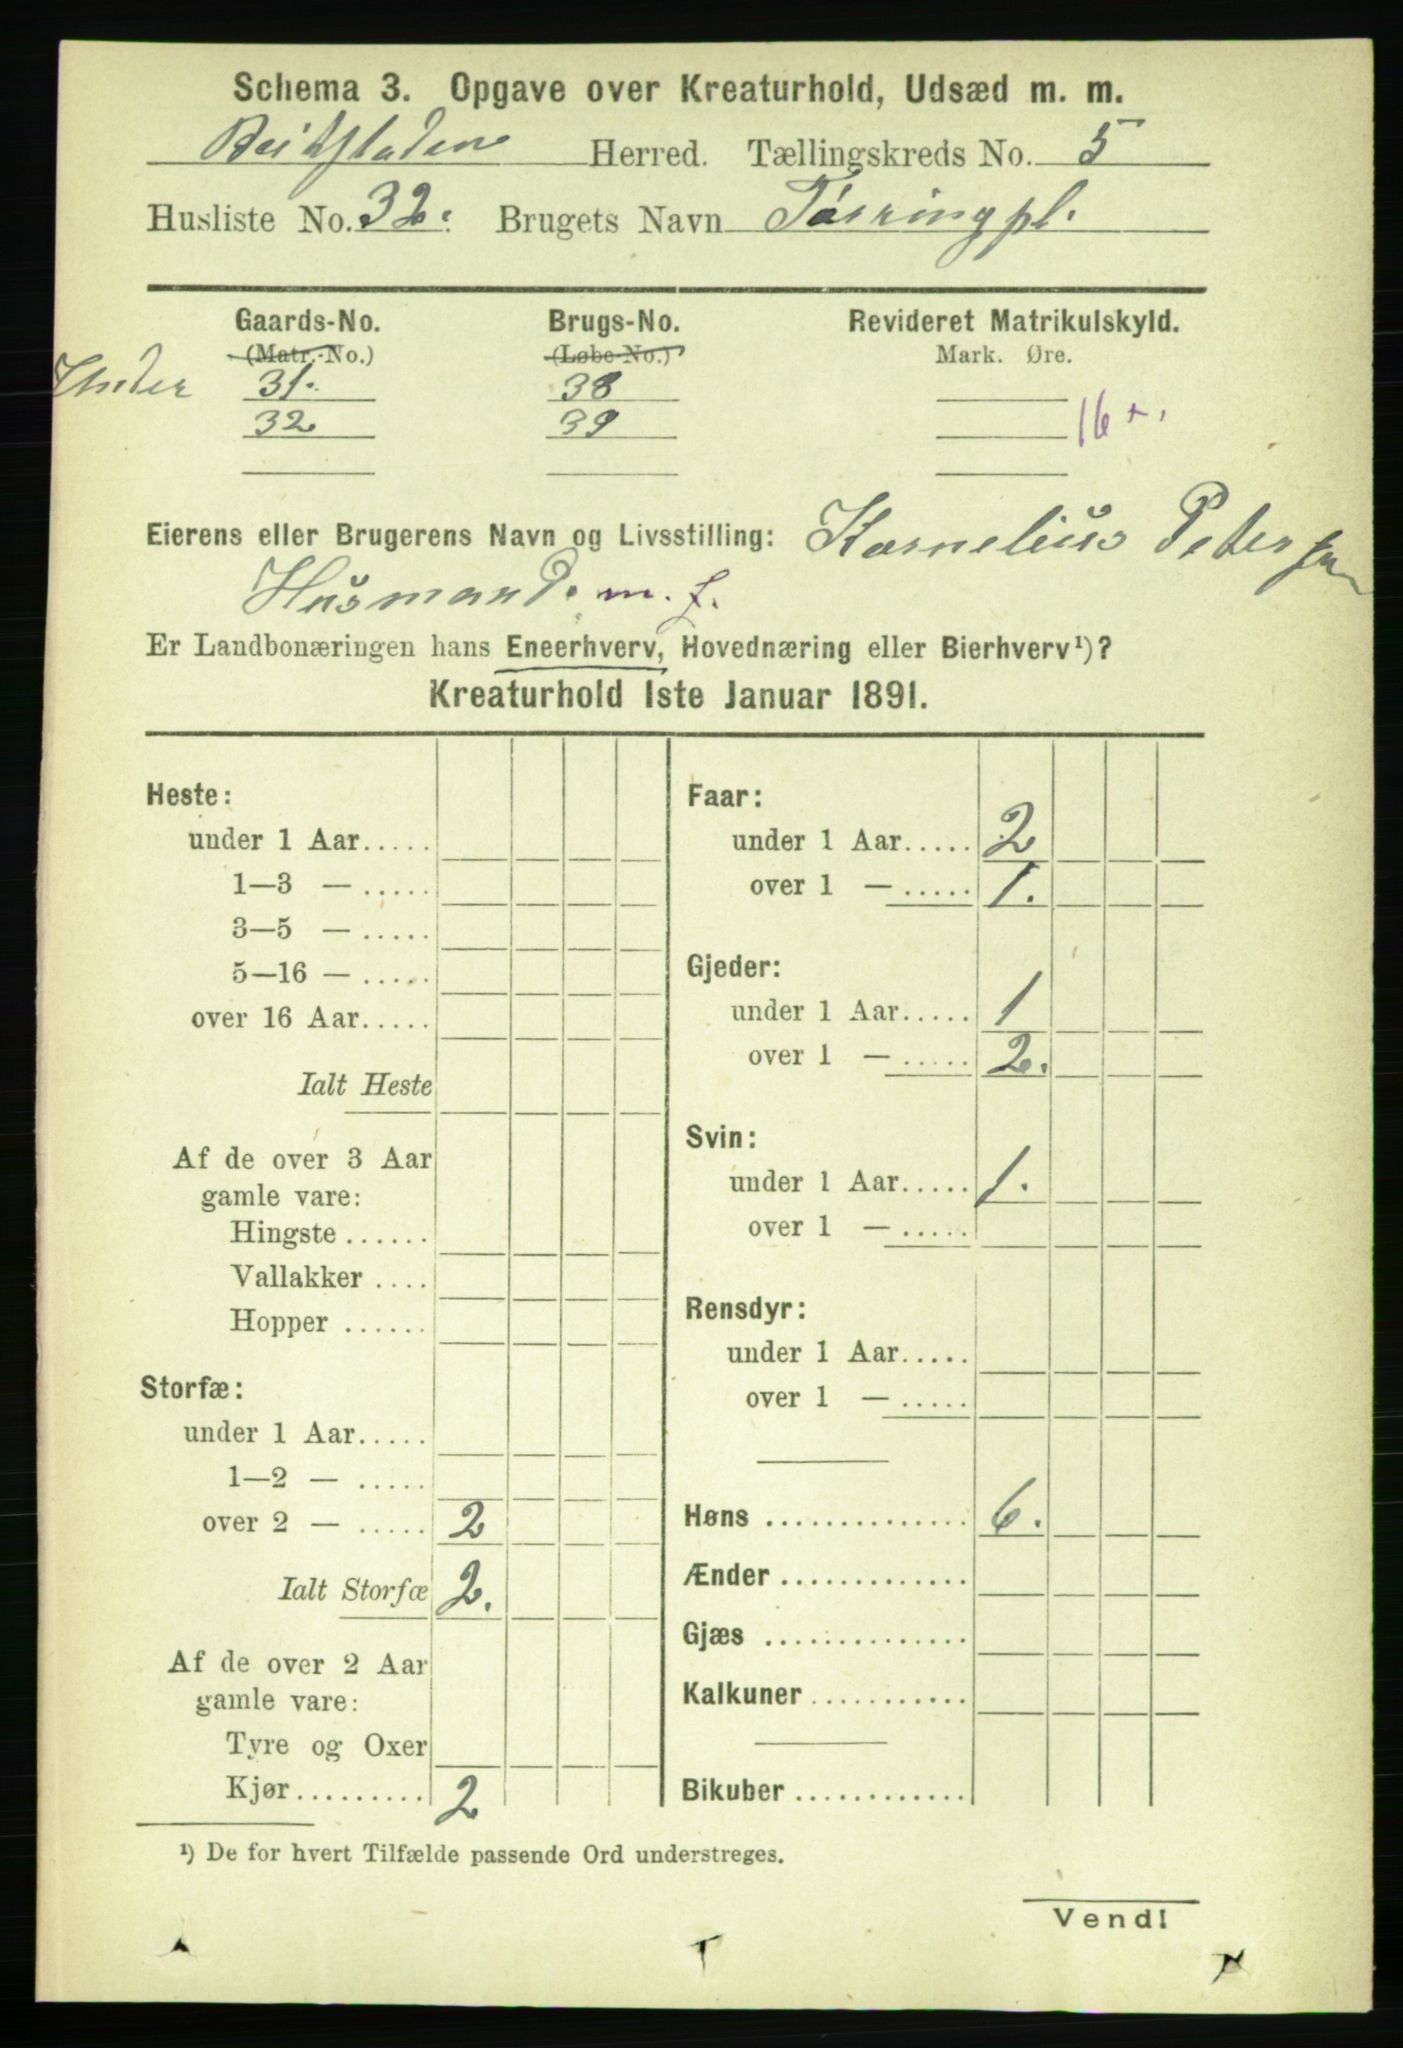 Schema 3. Opgave over Kreaturhold, Udsæd m. m.
Beitstaden Herred. Tællingskreds No. 5
Husliste No. 32. Brugets Navn Tørring pl.
Gaards-No. Brugs-No. Revideret Matrikulskyld.
(Matr.-No.) (Løbe-No.) Mark. Øre.
Under 31. 38
32 39 16
Eierens eller Brugerens Navn og Livsstilling: Kornelius Petersen
Husmand. m. j.
Er Landbonæringen hans Eneerhverv, Hovednæring eller Bierhverv¹)?
Kreaturhold 1ste Januar 1891.
Heste:
under 1 Aar.....
1—3 — .....
3—5 — .....
5—16 — .....
over 16 Aar.....
Ialt Heste
Af de over 3 Aar
gamle vare:
Hingste ......
Vallakker ....
Hopper ......
Storfæ:
under 1 Aar.....
1—2 — .....
over 2 — ..... 2
Ialt Storfæ 2.
Af de over 2 Aar
gamle vare:
Tyre og Oxer
Kjør......... 2
Faar:
under 1 Aar..... 2
over 1 — ..... 1.
Gjeder:
under 1 Aar..... 1
over 1 — ..... 2.
Svin:
under 1 Aar..... 1.
over 1 — .....
Rensdyr:
under 1 Aar.....
over 1 — .....
Høns .............. 6.
Ænder .............
Gjæs ..............
Kalkuner ...........
Bikuber ............
¹) De for hvert Tilfælde passende Ord understreges.
Vend!